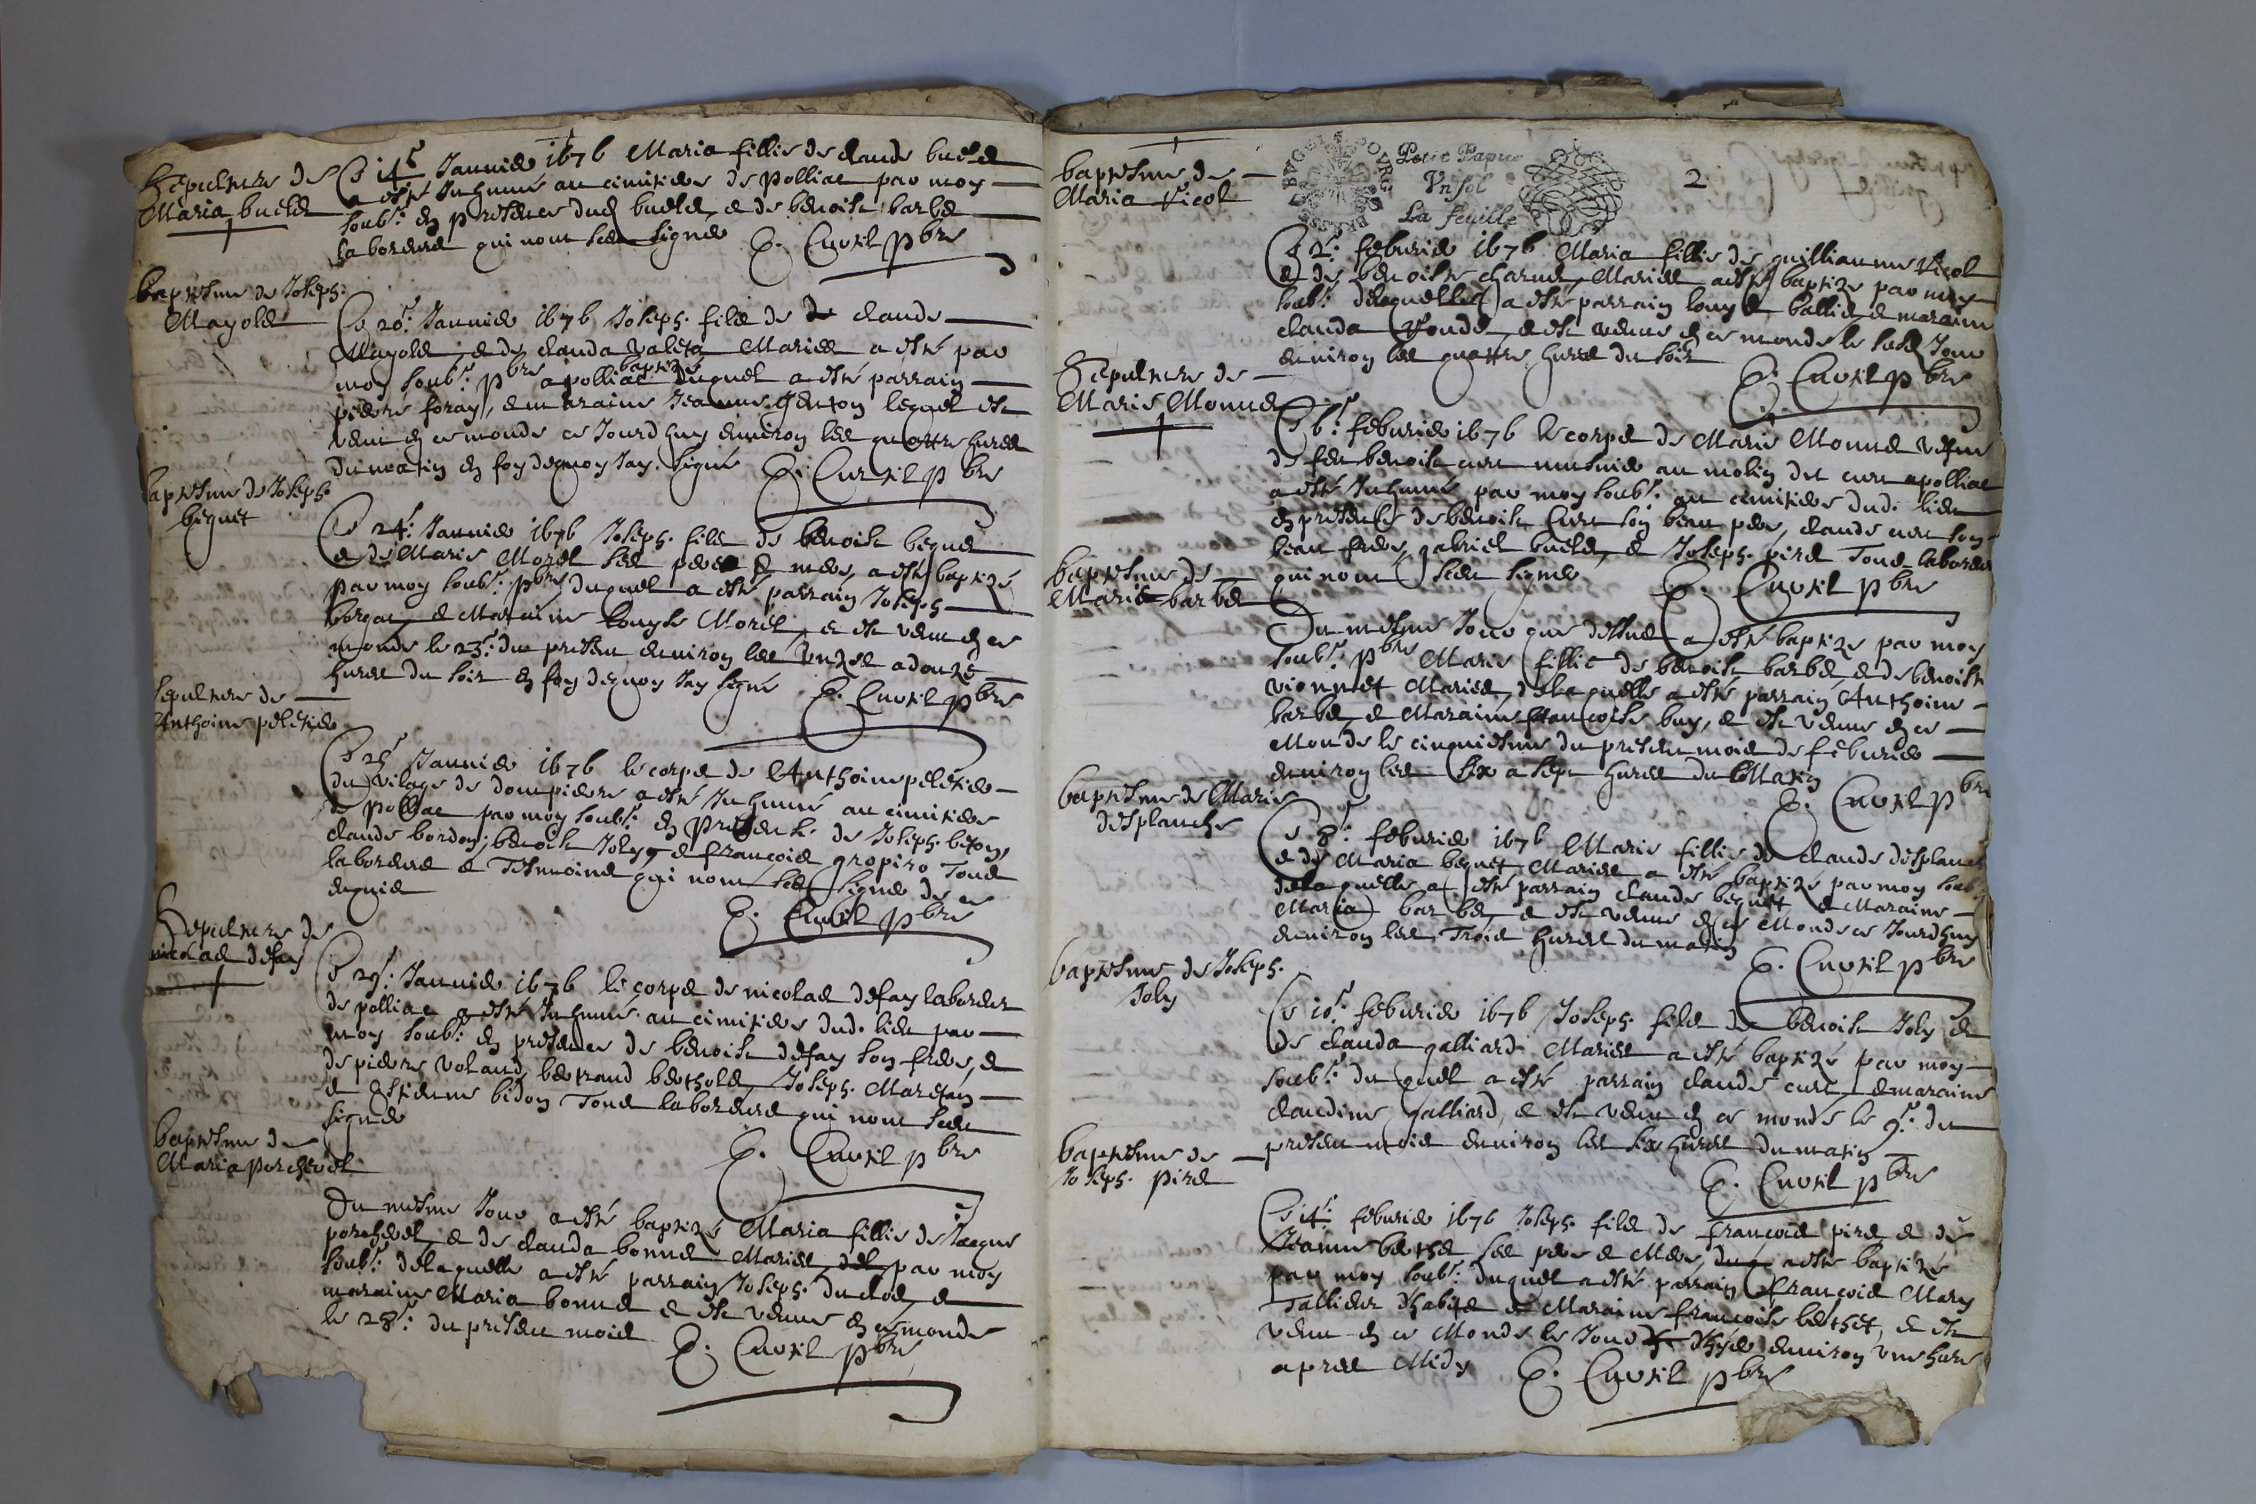 Sepulture de
Maria buelle
Ce 14e Januier 1676 Maria fillie de claude buelle
a esté Inhumé au cimitiere de Polliat par moy
soubs: en presence dud buelle, et de benoist barbet
laboreurs qui nont sceu signer
E. Cursil pbre
baptesme de Joseph:
Mayolle
Ce 20e: Januier 1676 Joseph. filz de de claude
Mayolle, et de clauda valeta Mariez a esté par
moy soubs: pbre baptizé a polliat duquel a esté parrain
pierre foray, et maraine Jeanne genton lequel est
venu en ce monde ce Jourdhuy enuiron les quattre hures
du matin en foy dequoy Jay signé
E. Cursil pbre
baptesme de Joseph
bequet
Ce 24e: Januier 1676 Joseph. filz de benoist bequet
et de Marie Morel ses pere et mere, a esté baptizé
par moy soubs: pbre, duquel a esté parrain Joseph
borgat, et Maraine Louyse Morel, et est venu en ce
monde le 23e: du present enuiron les unze a douze
hures du soir en foy dequoy Jay signé
E. Cursil pbre
Sepulture de
Anthoine peletier
Ce 25e Januier 1676 le corps de Anthoine peletier
du vilage de dompierre a esté Inhumé au cimitiere
de Polliat par moy soubs: en presence de Joseph beton,
claude bordon, benoist Joly, et francois gropiro Tous
laboreurs et Tesmoins qui nont sceu signer de ce
enquis
E. Cursil pbre
Sepulture de
nicolas defay
Ce 29e: Januier 1676 le corps de nicolas defay laboreur
de polliat a esté Inhumé au cimitiere dud. lieu par
moy soubs: en presence de benoist defay son frere, et
de pierre voland, bertrand bertholet, Joseph. Maretan
et Estienne bidon Tous laboreurs qui nont sceu
signer
E. Cursil pbre
baptesme de
Maria porcheret
Du mesme Jour a esté baptizé Maria fillie de Jacque
porcheret, et de clauda bonnet Mariez, par moy
soubs: delaquelle a esté parrain Joseph. duclos, et
maraine Maria bonnet et est venue en ce monde
le 28e: du present mois
E. Cursil pbre
baptesme de
Maria Vicol
Petit Papier
Vn sol
La feuille
2
Ce 2e: feburier 1676 Maria fillie de guilliaume Vicol
et de benoiste charnet Mariez a esté baptizé par moy
soubs: delaquelle a esté parrain louys ballie, et maraine
clauda ronde, et est venue en ce monde le susd Jour
enuiron les quattre hures du soir
E. Cursil pbre
Sepulture de
Marie Monnet
Ce 6e: feburier 1676 le corps de Marie Monnet vefue
de feu benoist curt musnier au molin du curt a polliat
a esté Inhumé par moy soubs: au cimitiere dud. lieu
en presence de benoist Curt son beau pere, claude curt son
beau frere, gabriel buelle, et Joseph. pire Tous laboreurs
qui nont sceu signer
E. Cursil pbre
baptesme de
Marie barbet
Du mesme Jour que dessus a esté baptizé par moy
soubs: pbre Marie fillie de benoist barbet, et de benoiste
vionnet Mariez, delaquelle a esté parrain Anthoine
barbet, et Maraine francoise buy, et est venue en ce
Monde le cinquiesme du present mois de feburier
enuiron les six a sept hures du Matin
E. Cursil pbre
baptesme de Marie
desplanche
Ce 8e: feburier 1676 Marie fillie de claude desplanche
et de Maria bequet Mariez a esté baptizé par moy soubs:
delaquelle a esté parrain claude bequet et Maraine
Maria barbet, et est venue en ce Monde ce Jourdhuy
enuiron les Trois hures du matin
E. Cursil pbre
baptesme de Joseph.
Joly
Ce 10e: feburier 1676 Joseph. filz de benoist Joly et
de clauda galliard Mariez a esté baptizé par moy
soubs: duquel a esté parrain claude curt, et maraine
claudine galliard, et est venu en ce monde le 9e: du
present mois enuiron les six hures du matin
E. Cursil pbre
baptesme de
Joseph. pire
Ce 14e: feburier 1676 Joseph. filz de francois pire et de
Jeanne berthet ses pere et Mere, a esté baptizé
par moy soubs: duquel a esté parrain francois Mary
Tallieur dhabits et Maraine francoise berthet, et est
venu en ce Monde le Jour dhyer enuiron vne hure
apres Midy
E. Cursil pbre